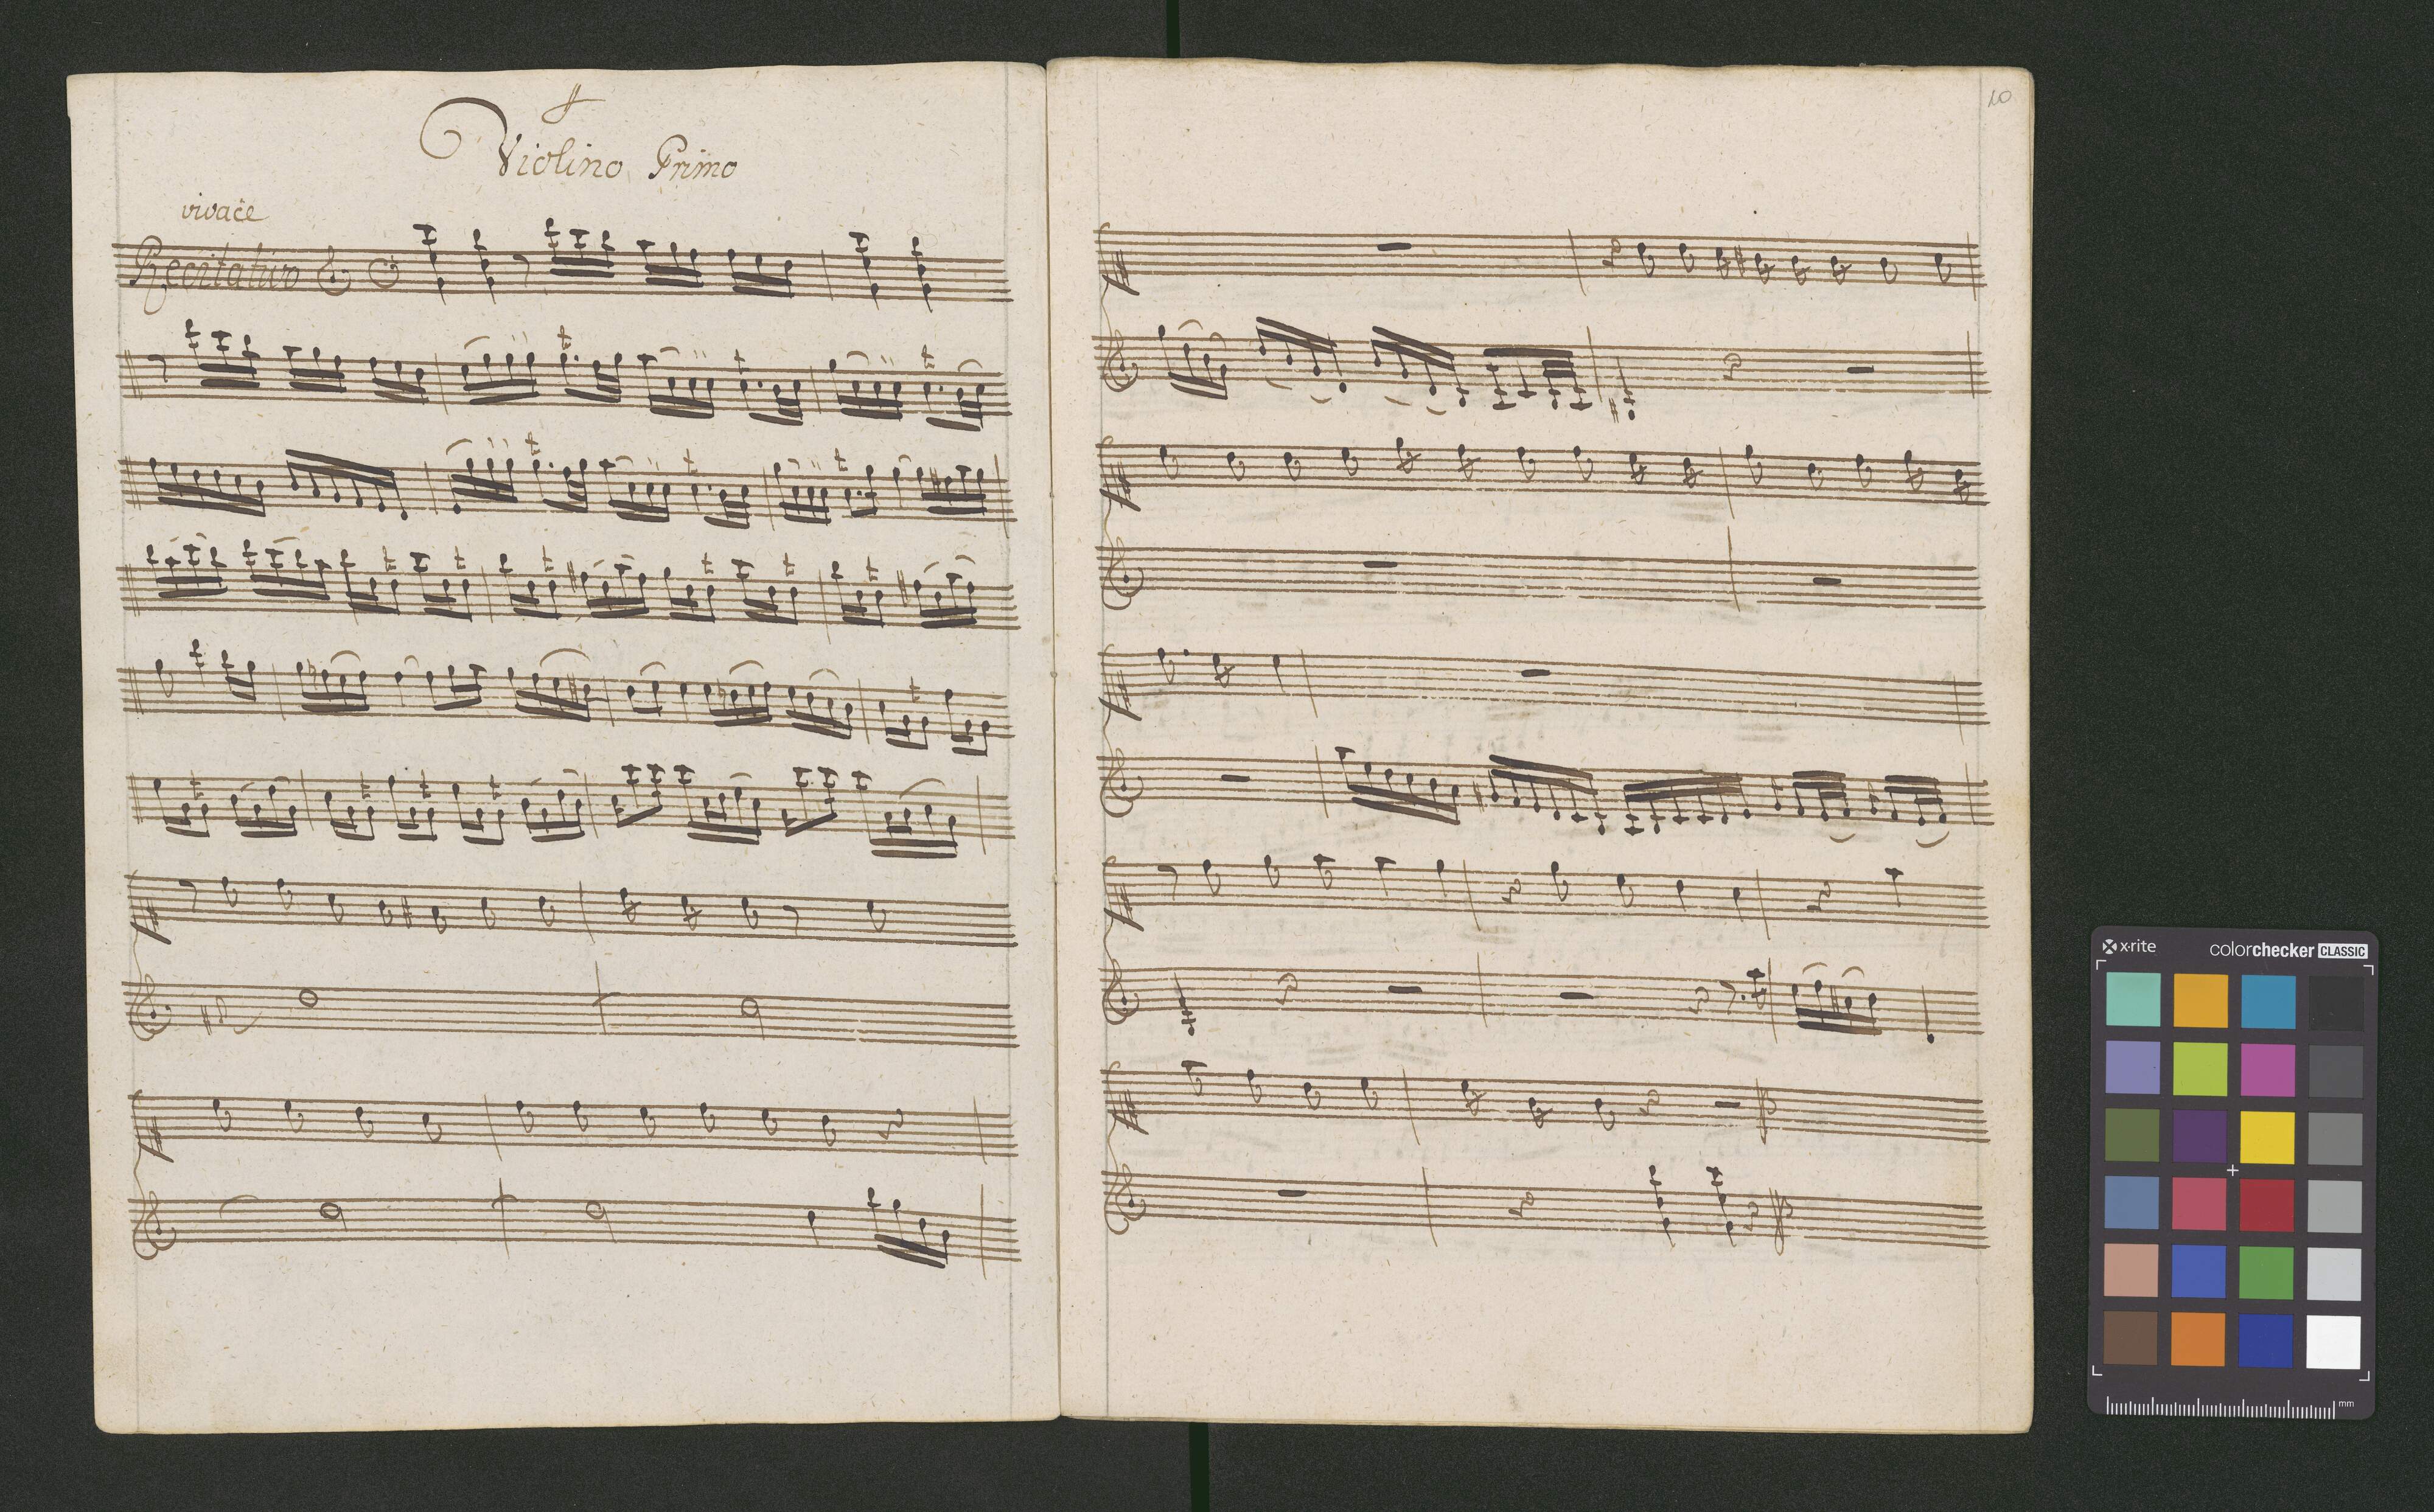 Violino Primo
vivace
Recitativo
10
x-rite
colorchecker CLASSIC
mm